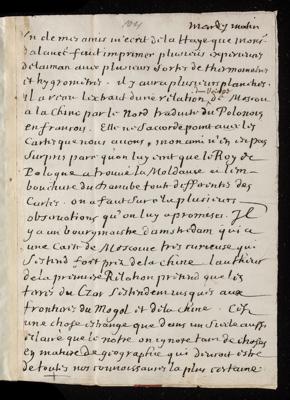 104 mardy matin
Un de mes amis m'escrit de la Haye que mons
dalancé fait imprimer plusieurs experiences
de laiman avec plusieurs sortes de thermometres
et hygrometres. il y aura plusieurs planches.
Il a receu l'extrait d'une relation du voiage de Moscou
a la Chine par le Nord traduite du Polonois
en francois. Elle ne s'accorde point avec les
Cartes que nous avons, mon ami n'en est pas
surpris parce qu'on luy escrit que le Roy de
Pologne a trouvé la Moldavie et l'em-
bouchure du danube tout differentes des
Cartes. on a fait sur cela plusieurs
observations qu'on luy a promises. Il
y a un bourgmaistre damsterdam qui a
une Carte de Moscovie tres curieuse qui
s'estend fort pres de la Chine. lautheur
de la premiere Relation pretend que les
terres du Czar s'estendent jusques aux
frontieres du Mogol et de la Chine. C'est
une chose estrange que dans un siecle aussi
esclairé que le notre on ignore tant de choses
en matiere de geographie qui devroit estre
de toutes nos connoissances la plus certaine